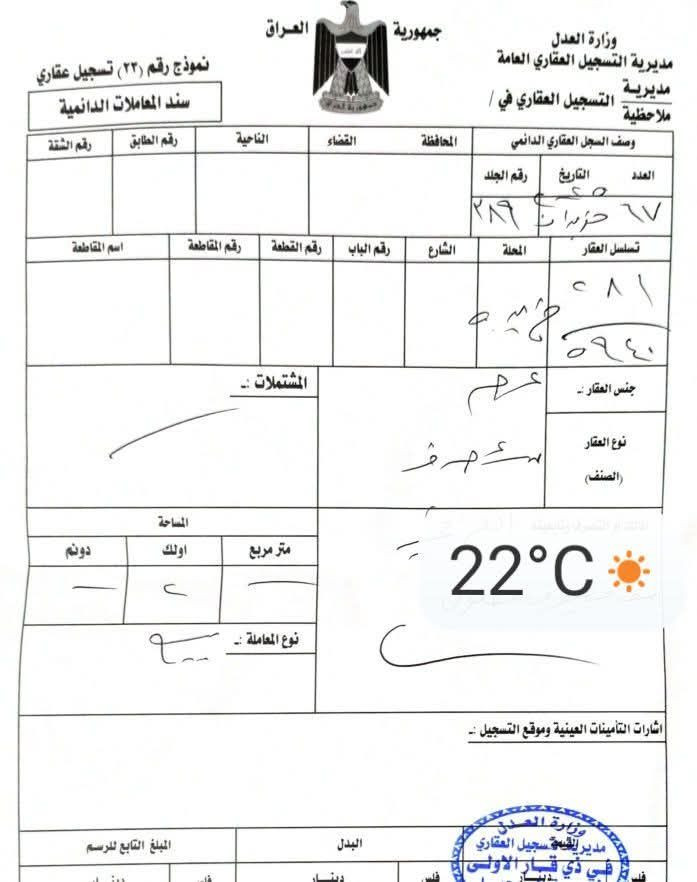 جمهورية العراق
وزارة العدل
مديرية التسجيل العقاري العامة
مديرية
ملاحظية
التسجيل العقاري في /
نموذج رقم (٢٣) تسجيل عقاري
سند المعاملات الدائمية
جمهورية العراق
وصف السجل العقاري الدائمي
المحافظة القضاء الناحية رقم الطابق رقم الشقة
العدد التاريخ رقم الجلد
٦٧ حزيران ٣٨٩
تسلسل العقار المحلة الشارع رقم الباب رقم القطعة رقم المقاطعة اسم المقاطعة
٢٨١
٥٩٤٠
جنس العقار :ـ
المشتملات :ـ
نوع العقار
(الصنف)
المساحة
متر مربع اولك دونم
٢
22°C
نوع المعاملة :ـ
بيع
اشارات التأمينات العينية وموقع التسجيل :ـ
وزارة العدل
مديرية التسجيل العقاري
في ذي قار الاولى
البدل المبلغ التابع للرسم
دينار فلس دينار فلس دينار